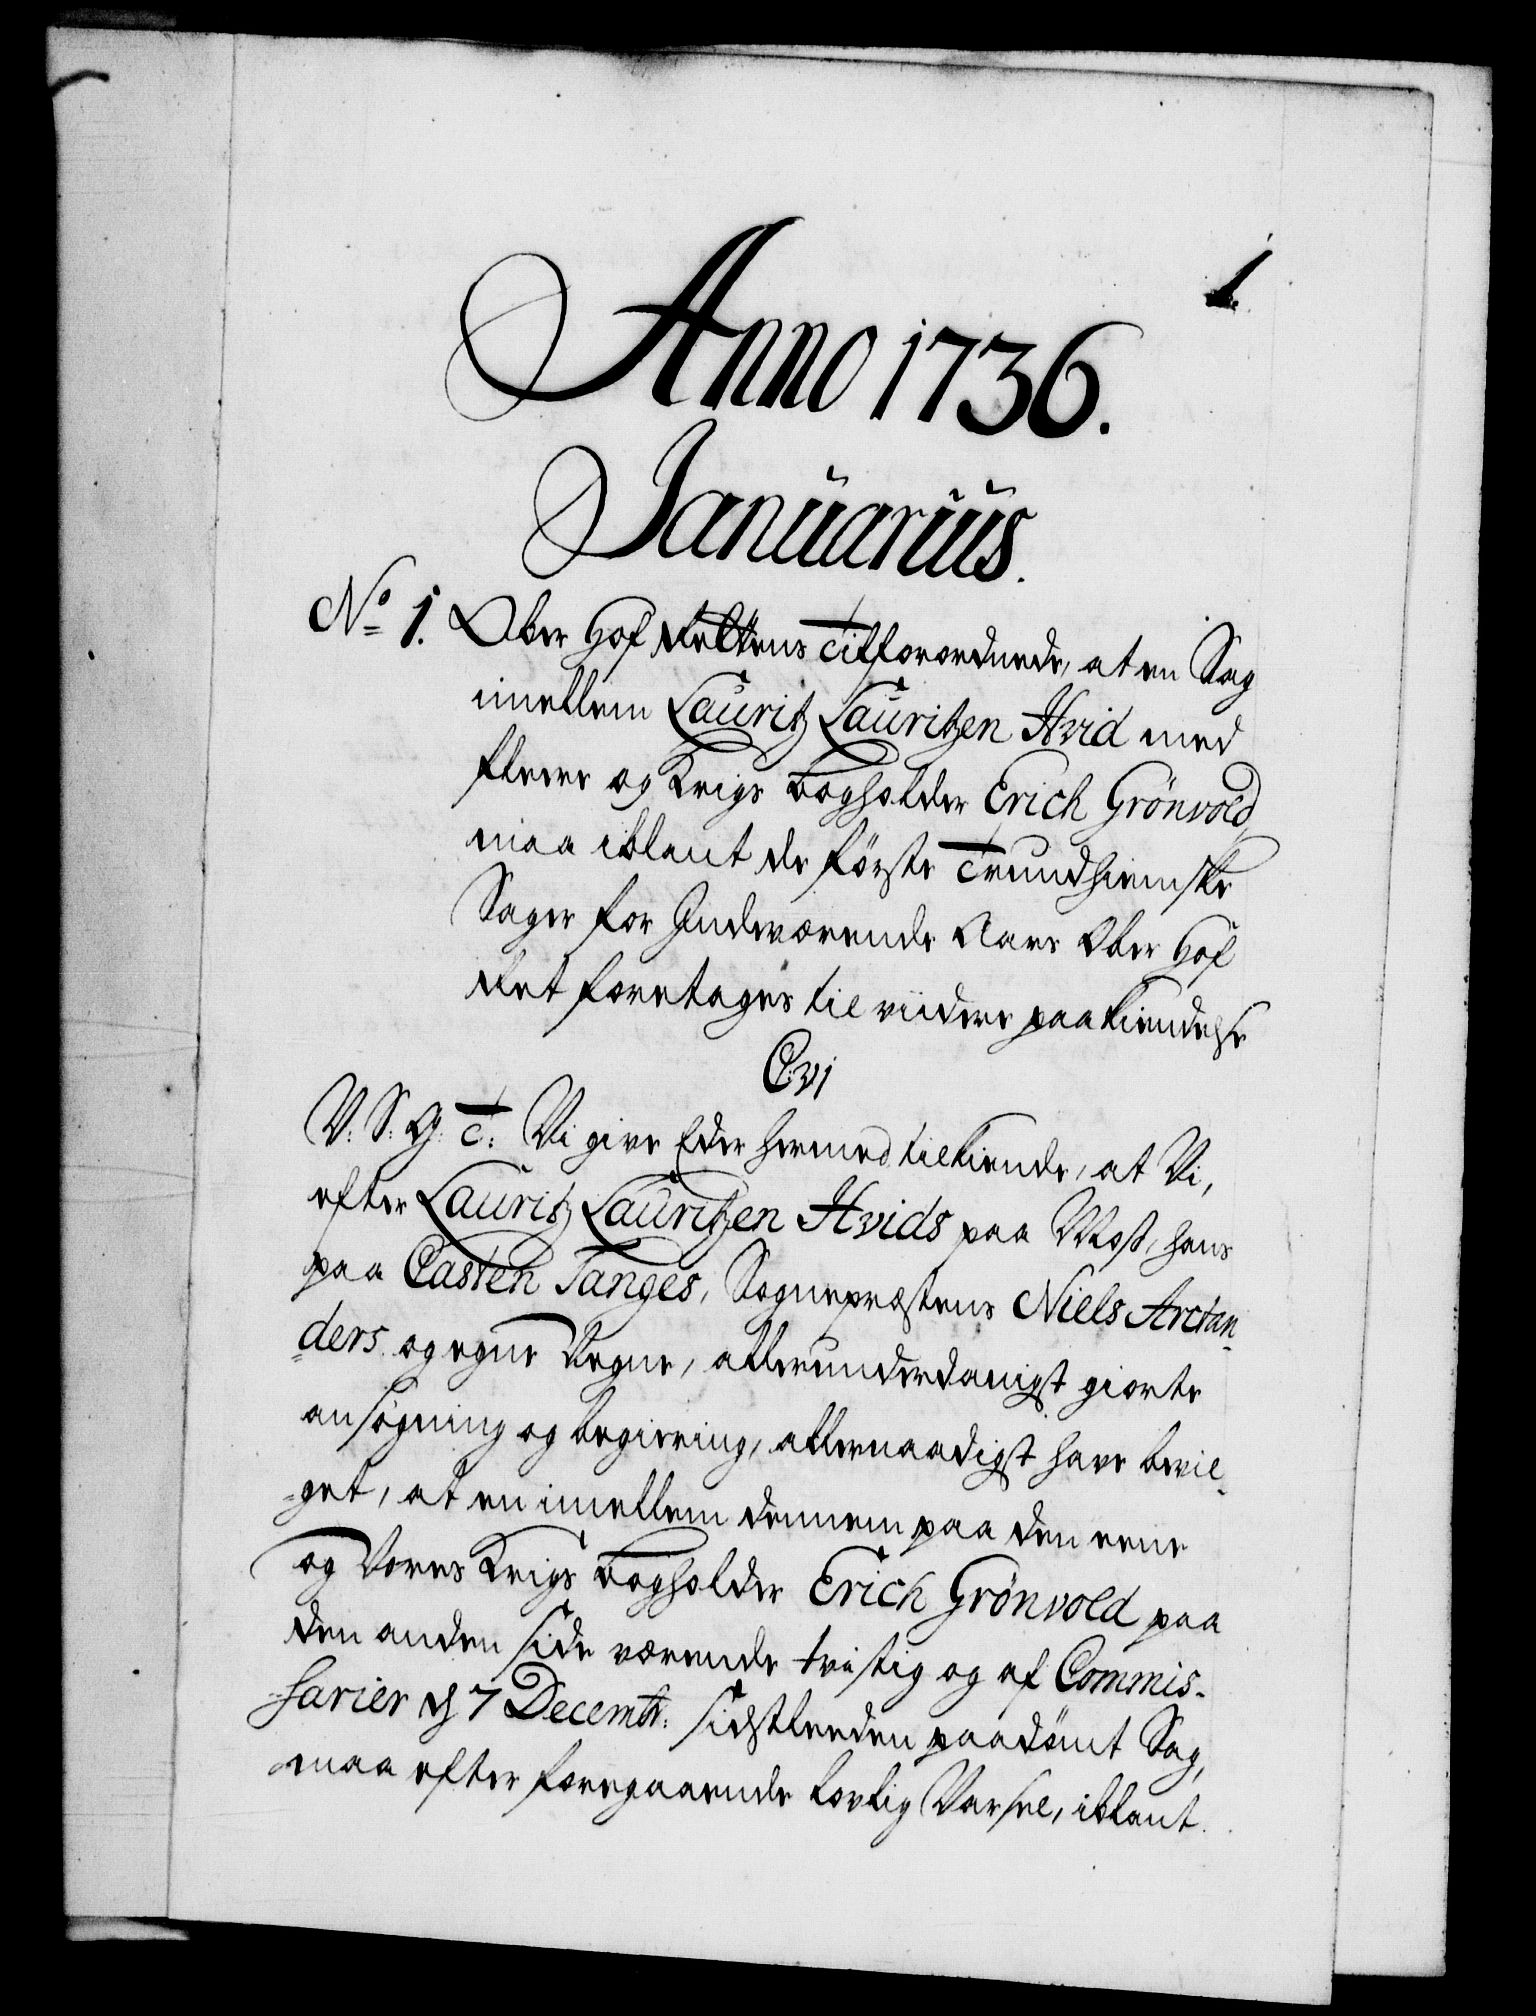 1.
Anno 1736.
Januarius.
No 1. Ober Hof Rettens Tilforordnede, at en Sag
imellem Lauritz Lauritzen Hvid med
fleere og Krigs bogholder Erich Grönvold
maa iblant de förste Trundhiemske
Sager for Indeværende Aars Ober Hof
Ret foretages til viidere paakiendelse
C. vi
V: S: G: T: Vi give Eder hermed tilkiende, at Vi,
efter Lauritz Lauritzen Hvids paa Moss, hans
paa Casten Tanges, Sognepræstens Niels Arctan-
=ders og egne Vegne, allerunderdanigst giorte
ansögning og begiering, allernaadigst have bevil-
=get, at en imellem dennem paa den eene
og Vores Krigs bogholder Erich Grönvold paa
den anden side værende tvistig og af Commis-
sarier d 7 Decembr: sidstleeden paadömt Sag,
maa efter foregaaende lovlig Varsel, iblant